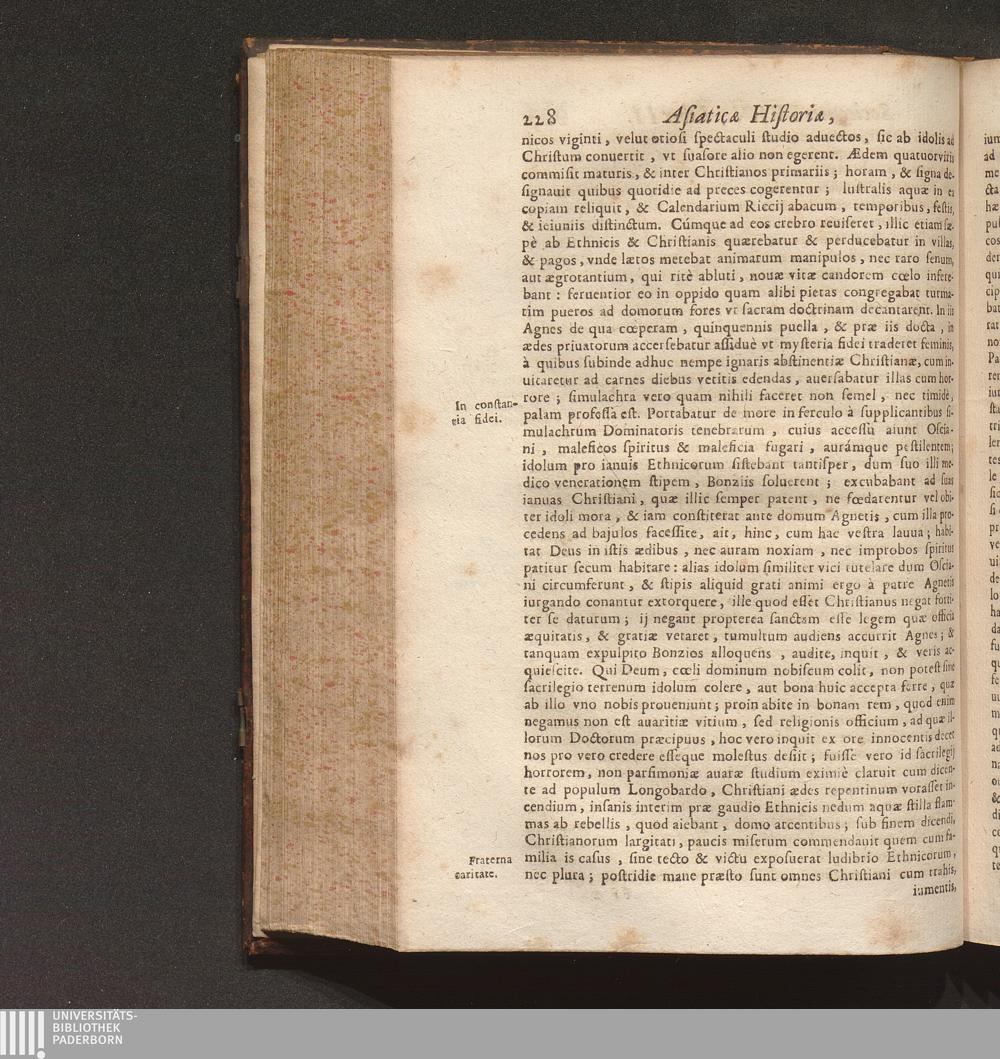 228 Asiaticæ Historiæ,
nicos viginti, velut otiosi spectaculi studio aduectos, sic ab idolis ad
Christum conuertit, vt suasore alio non egerent. Ædem quatuorviris
commisit maturis, & inter Christianos primariis; horam, & signa de-
signauit quibus quotidie ad preces cogerentur; lustralis aquæ in ei
copiam reliquit, & Calendarium Riccij abacum, temporibus, festis,
& ieiuniis distinctum. Cúmque ad eos crebro reuiseret, illic etiam sæ-
pè ab Ethnicis & Christianis quærebatur & perducebatur in villas,
& pagos, vnde lætos metebat animarum manipulos, nec raro senum,
aut ægrotantium, qui ritè abluti, nouæ vitæ candorem cœlo infere-
bant: feruentior eo in oppido quam alibi pietas congregabat turma-
tim pueros ad domorum fores vt sacram doctrinam decantarent. In iis
Agnes de qua cœperam, quinquennis puella, & præ iis docta, in
ædes priuatorum accersebatur assiduè vt mysteria fidei traderet feminis,
à quibus subinde adhuc nempe ignaris abstinentiæ Christianæ, cum in-
uitaretur ad carnes diebus vetitis edendas, auersabatur illas cum hor-
In constan-
tia fidei.
rore; simulachra vero quam nihili faceret non semel, nec timidè,
palam professa est. Portabatur de more in ferculo à supplicantibus si-
mulachrum Dominatoris tenebrarum, cuius accessu aiunt Oscia-
ni, maleficos spiritus & maleficia fugari, aurámque pestilentem;
idolum pro ianuis Ethnicorum sistebant tantisper, dum suo illi mo-
dico venerationem stipem, Bonziis soluerent; excubabant ad suas
ianuas Christiani, quæ illic semper patent, ne fœdarentur vel obi-
ter idoli mora, & iam constiterat ante domum Agnetis, cum illa pro-
cedens ad bajulos facessite, ait, hinc, cum hac vestra lauua; habi-
tat Deus in istis ædibus, nec auram noxiam, nec improbos spiritus
patitur secum habitare: alias idolum similiter vici tutelare dum Oscia-
ni circumferunt, & stipis aliquid grati animi ergo à patre Agnetis
iurgando conantur extorquere, ille quod esset Christianus negat forti-
ter se daturum; ij negant propterea sanctam esse legem quæ officia
æquitatis, & gratiæ vetaret, tumultum audiens accurrit Agnes; &
tanquam expulpito Bonzios alloquens, audite, inquit, & veris ac-
quiescite. Qui Deum, cœli dominum nobiscum colit, non potest sine
sacrilegio terrenum idolum colere, aut bona huic accepta ferre, quæ
ab illo vno nobis proueniunt; proin abite in bonam rem, quod enim
negamus non est auaritiæ vitium, sed religionis officium, ad quæ il-
lorum Doctorum præcipuus, hoc vero inquit ex ore innocentis decet
nos pro vero credere esseque molestus desiit; fuisse vero id sacrilegij
horrorem, non parsimoniæ auaræ studium eximiè claruit cum dicen-
te ad populum Longobardo, Christiani ædes repentinum vorasset in-
cendium, insanis interim præ gaudio Ethnicis nedum aquæ stilla flam-
mas ab rebellis, quod aiebant, domo arcentibus; sub finem dicendi,
Christianorum largitati, paucis miserum commendauit quem cum fa-
Fraterna
caritate.
milia is casus, sine tecto & victu exposuerat ludibrio Ethnicorum,
nec plura; postridie mane præsto sunt omnes Christiani cum trahis,
iumentis,
UNIVERSITÄTS-
BIBLIOTHEK
PADERBORN